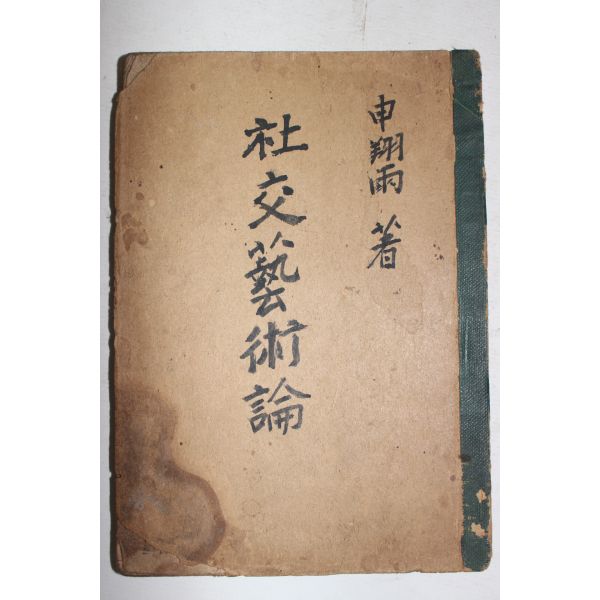 申翔雨 著
社交藝術論